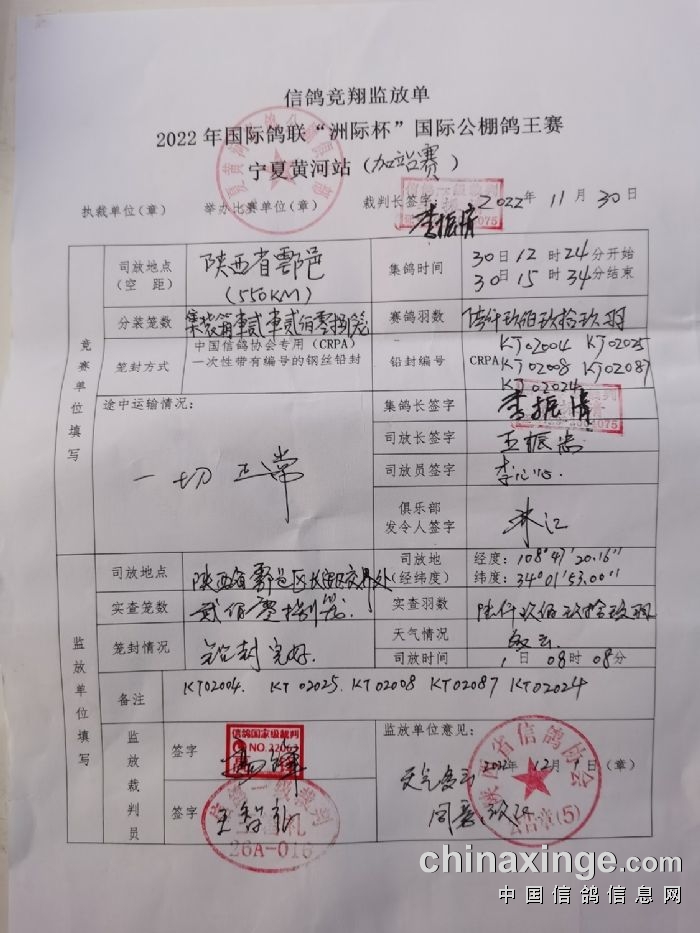 信鸽竞翔监放单
2022年国际鸽联“洲际杯”国际公棚鸽王赛
宁夏黄河站（加站赛）
执裁单位(章) 举办比赛单位(章) 裁判长签字 李振清 2022年 11月30日
竞赛单位填写
司放地点（空 距） 陕西省鄠邑 (550KM) 集鸽时间 30日12时24分开始 30日15时34分结束
分装笼数 集装箱車贰車贰佰零捌笼 赛鸽羽数 陆仟玖佰玖拾玖羽
笼封方式 中国信鸽协会专用（CRPA）一次性带有编号的钢丝铅封 铅封编号 CRPA KT02004 KT02025 KT02008 KT02087 KT02024
途中运输情况： 一切正常
集鸽长签字 李振清
司放长签字 王振
司放员签字 李
俱乐部发令人签字
监放单位填写
司放地点 陕西省鄠邑区长安区交界处 司放地（经纬度） 经度：108°47'20.16" 纬度：34°01'53.00"
实查笼数 贰佰零捌笼 实查羽数 陆仟玖佰玖拾玖羽
笼封情况 铅封完好. 天气情况 多云
司放时间 1日08时08分
备注 KT02004. KT02025. KT02008 KT02087 KT02024
监放裁判员
签字
信鸽国家级裁判
签字 王智礼
26A-016
监放单位意见：
天气多云
同意放飞
2022年12月1日（章）
陕西省信鸽协会
(5)
chinaxinge.com
中国信鸽信息网